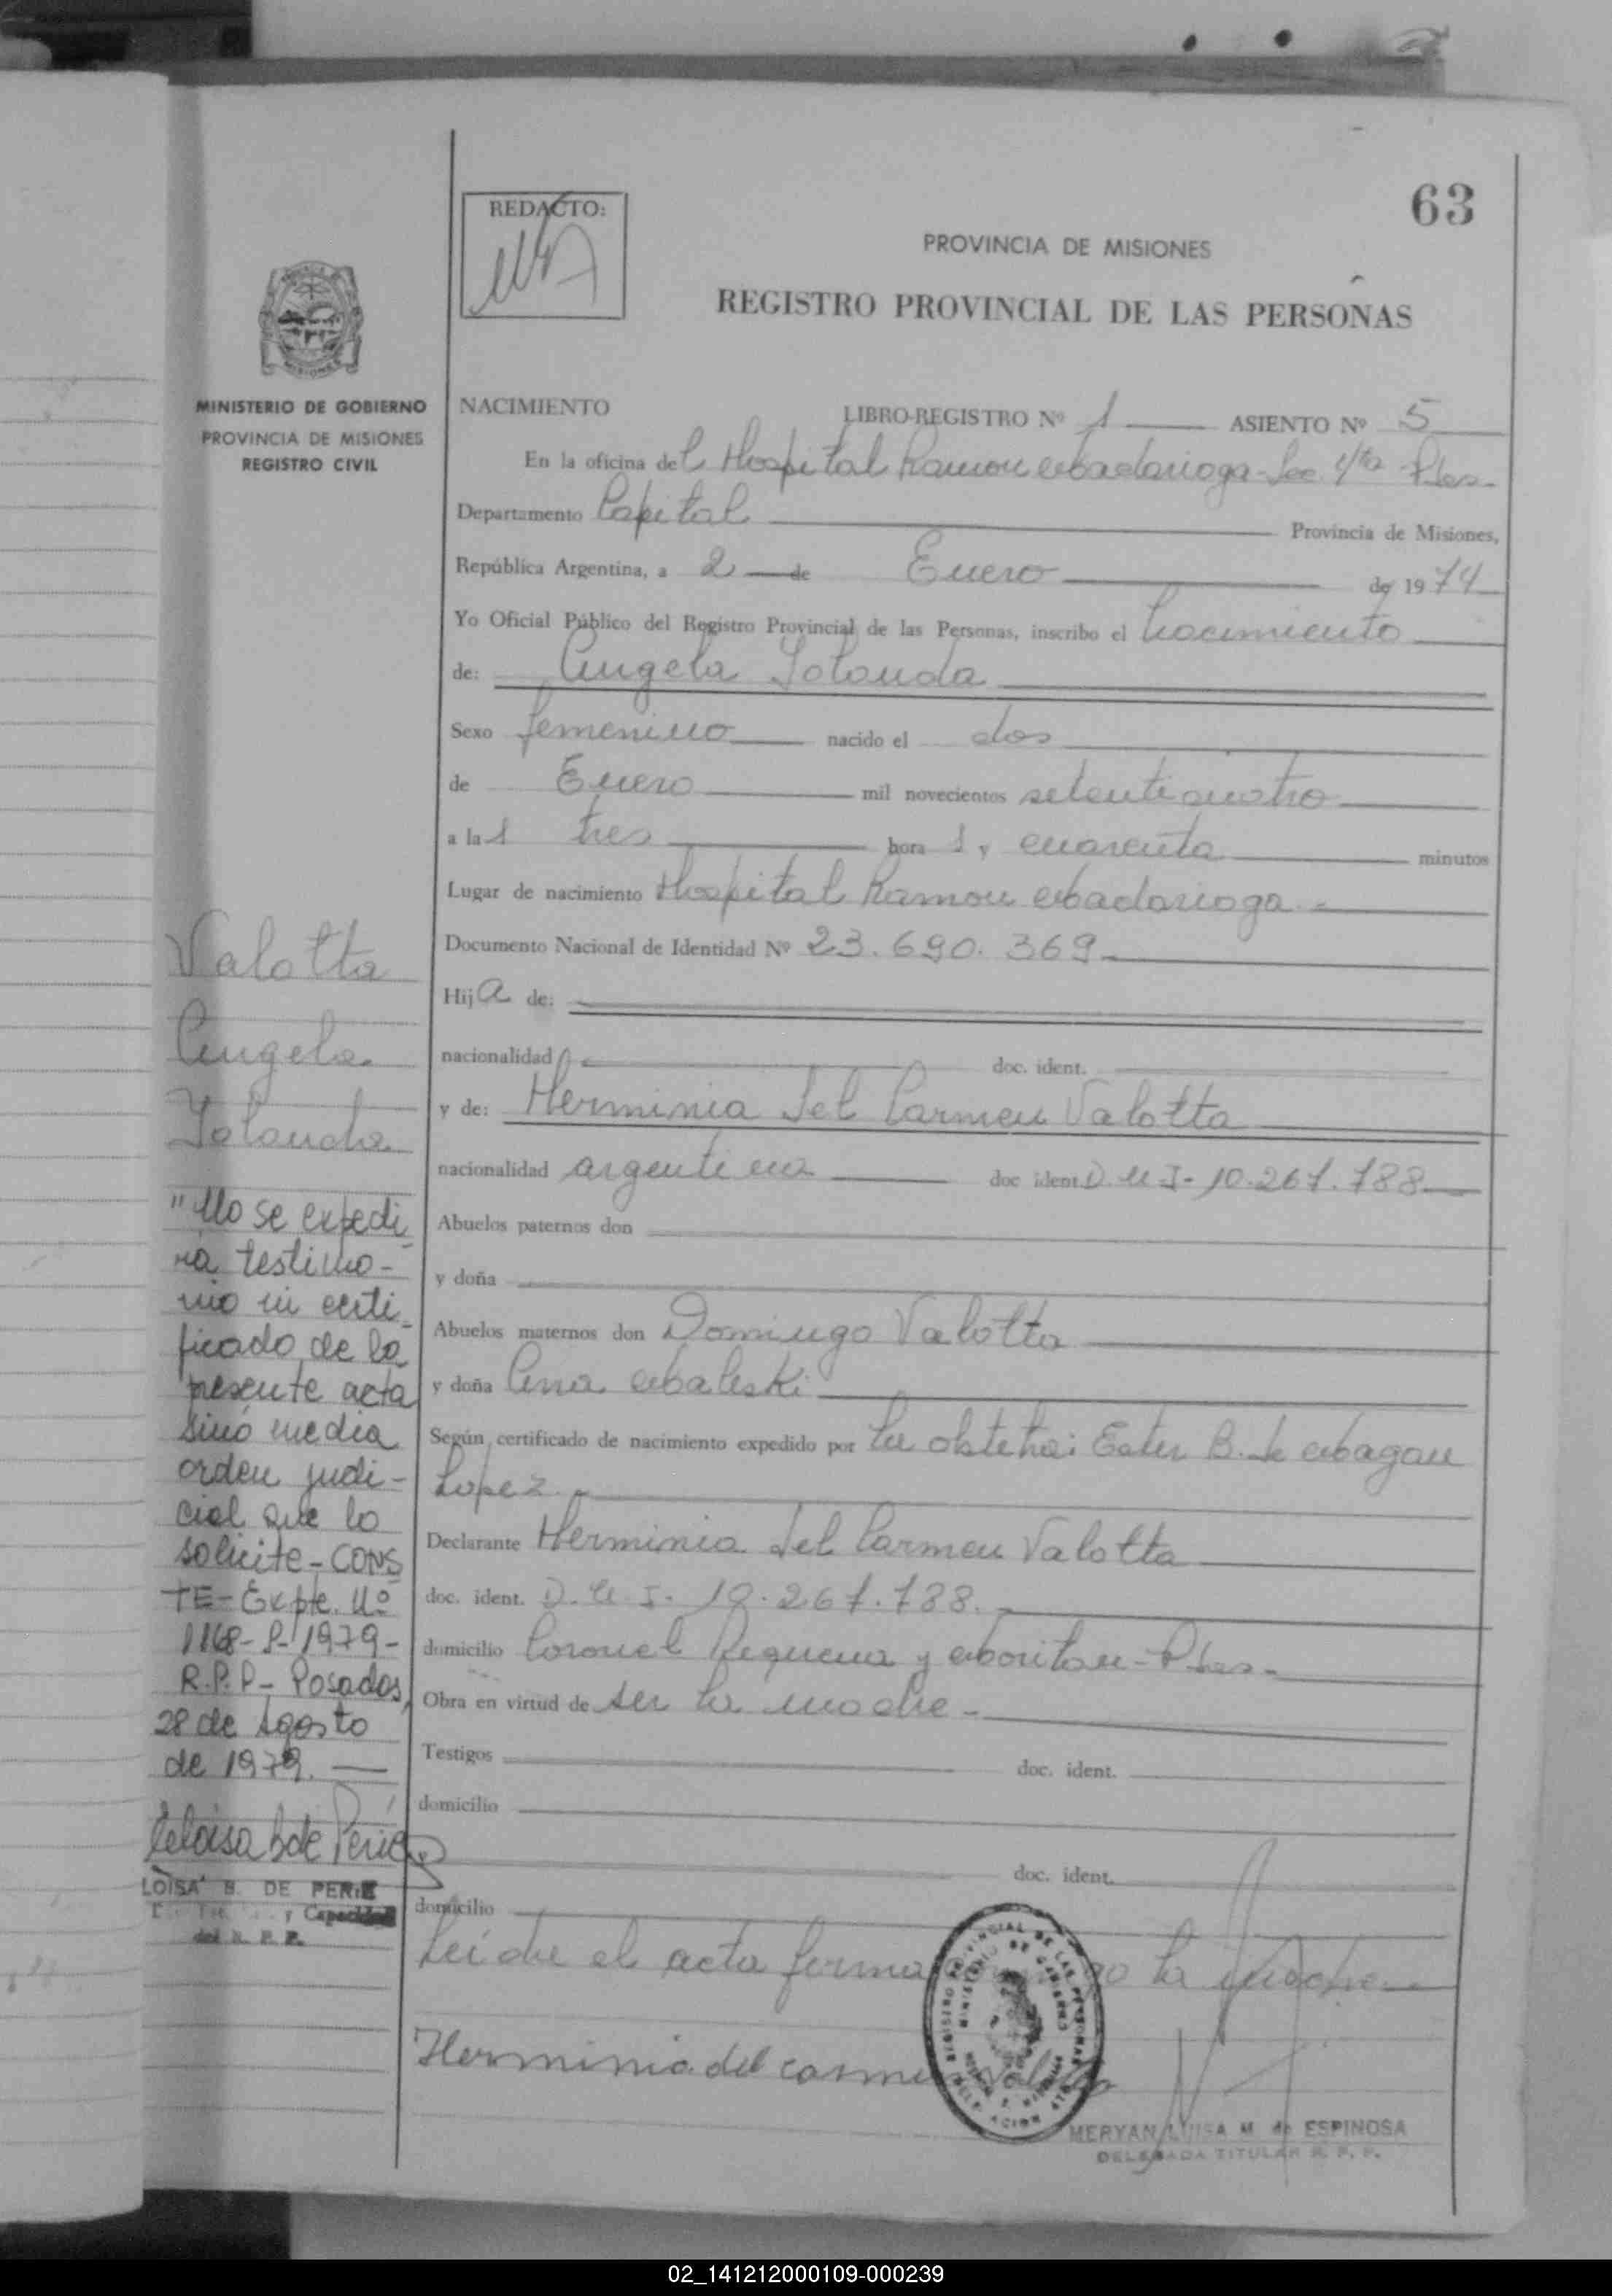 63
REDACTO:
PROVINCIA DE MISIONES
REGISTRO PROVINCIAL DE LAS PERSONAS
MISIONES
MINISTERIO DE GOBIERNO
PROVINCIA DE MISIONES
REGISTRO CIVIL
NACIMIENTO LIBRO-REGISTRO Nº 1 ASIENTO Nº 5
En la oficina del Hospital Ramon Madariaga - Sec. 4ta Pdas.-
Departamento Capital Provincia de Misiones,
República Argentina, a 2 de Enero de 1974
Yo Oficial Público del Registro Provincial de las Personas, inscribo el nacimiento
de: Angela Iolanda
Sexo femenino nacido el dos
de Enero mil novecientos setenticuatro
a las tres hora s y cuarenta minutos
Lugar de nacimiento Hospital Ramon Madariaga.-
Documento Nacional de Identidad Nº 23.690.369-
Hija de:
nacionalidad doc. ident.
y de: Herminia del Carmen Valotta
nacionalidad argentina doc ident. D.N.I- 10.267.788
Abuelos paternos don
y doña
Abuelos maternos don Domingo Valotta
y doña Ana Maleski
Según certificado de nacimiento expedido por la obstetra: Ester B. de
Lopez.-
Declarante Herminia del Carmen Valotta
doc. ident. D.N.I. 10.267.788.-
domicilio Coronel Reguera y - Pdas.-
Obra en virtud de ser la madre-
Testigos doc. ident.
domicilio
doc. ident.
domicilio
Leída el acta firma la madre.-
Herminia del carmen Valotta
MERYAN LUISA M. de ESPINOSA
DELEGADA TITULAR R. P. P.
Valotta
Angela
Iolanda
"No se expedi
rá testimo-
nio ni certi-
ficado de la
presente acta
sinó media
orden judi-
cial que lo
solicite - CONS
TE - Expte. Nº
1168-P-1979-
R.P.P - Posadas,
28 de Agosto
de 1979.
Eloisa B de Perié
LOISA B. DE PERIE
y Capacidad
del R. P. P.
02_141212000109-000239